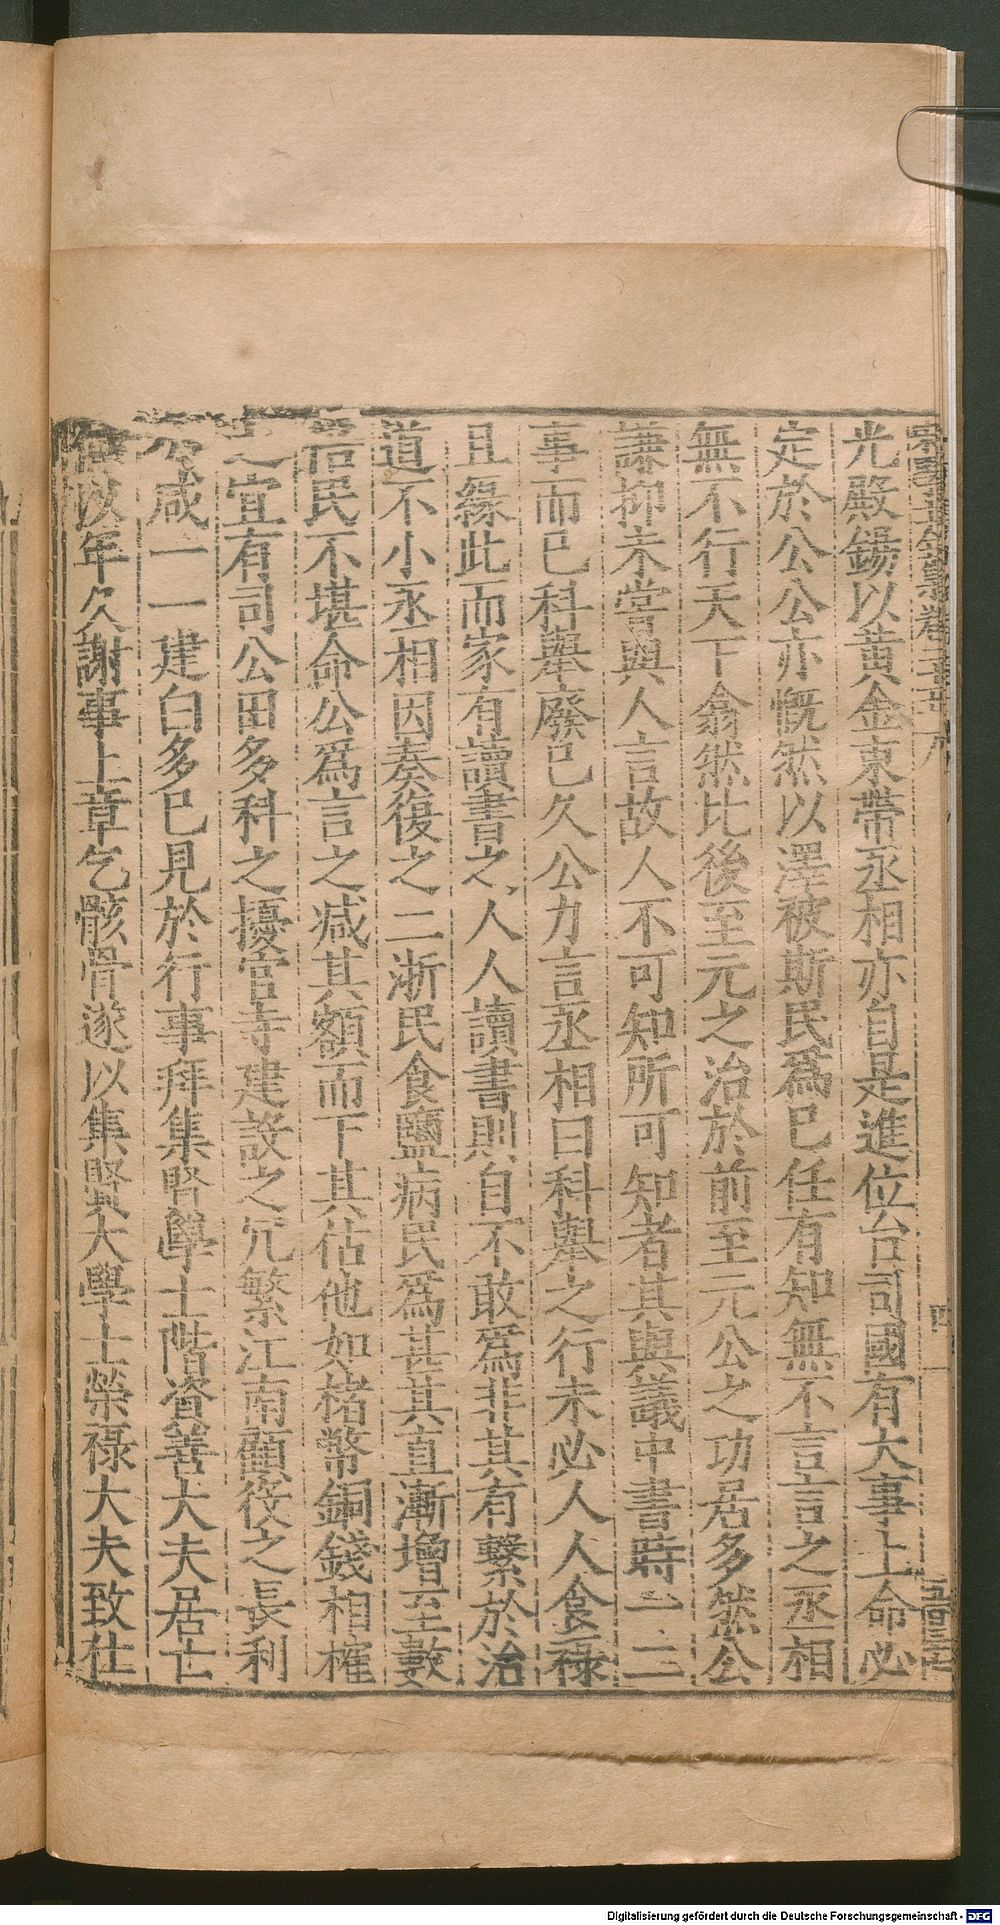 光殿錫以黄金束帶丞相亦自是進位台司國有大事上命必
定於公公亦慨然以澤被斯民爲已任有知無不言言之丞相
無不行天下翕然比後至元之治於前至元公之功居多然公
謙抑未嘗與人言故人不可知所可知者其與議中書時一二
事而已科舉廢已久公力言丞相曰科舉之行未必人人食祿
且緣此而家有讀書之人人讀書則自不敢爲非其有繫於治
道不小丞相因奏復之二浙民食鹽病民爲甚其直漸增至數
倍民不堪命公爲言之减其額而下其估他如楮幣銅錢相權
之宜有司公田多科之擾官寺建設之冗繁江南顧役之長利
咸一一建白多已見於行事拜集賢學士階資善大夫居亡
何以年久謝事上章乞骸骨遂以集賢大學士榮祿大夫致仕
Digitalisierung gefördert durch die Deutsche Forschungsgemeinschaft - DFG